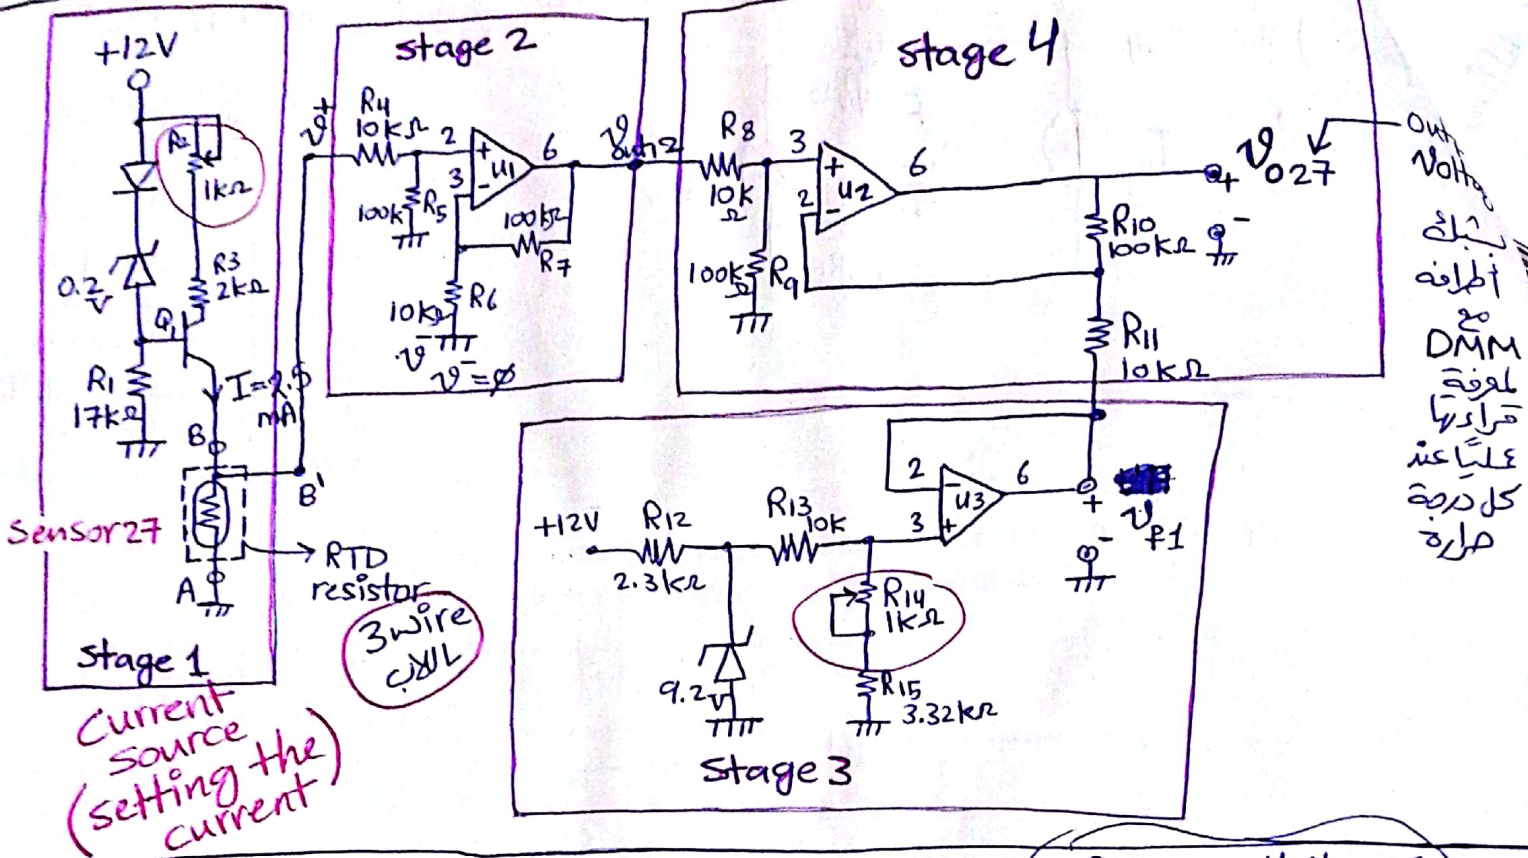 stage 2
stage 4
+12V
R2
1kΩ
0.2
V
R3
2kΩ
Q1
R1
17kΩ
I=2.5
mA
B
B'
Sensor27
A
RTD
resistor
3 wire
باللاب
stage 1
Current
source
(setting the
current)
v+
R4
10kΩ
2
3
+
-
U1
6
100k
R5
100kΩ
R7
10kΩ
R6
v-
v-=ø
v out2
R8
10k
Ω
3
2
+
-
U2
6
100k
Ω
R9
R10
100kΩ
R11
10kΩ
+
-
V027
Out
Voltg
نشبك
أطرافه
مع
DMM
لمعرفة
قراءتها
عمليًا عند
كل درجة
حرارة
+12V
R12
2.3kΩ
R13
10k
2
3
-
+
U3
6
+
-
v f1
R14
1kΩ
R15
3.32kΩ
9.2
V
Stage 3